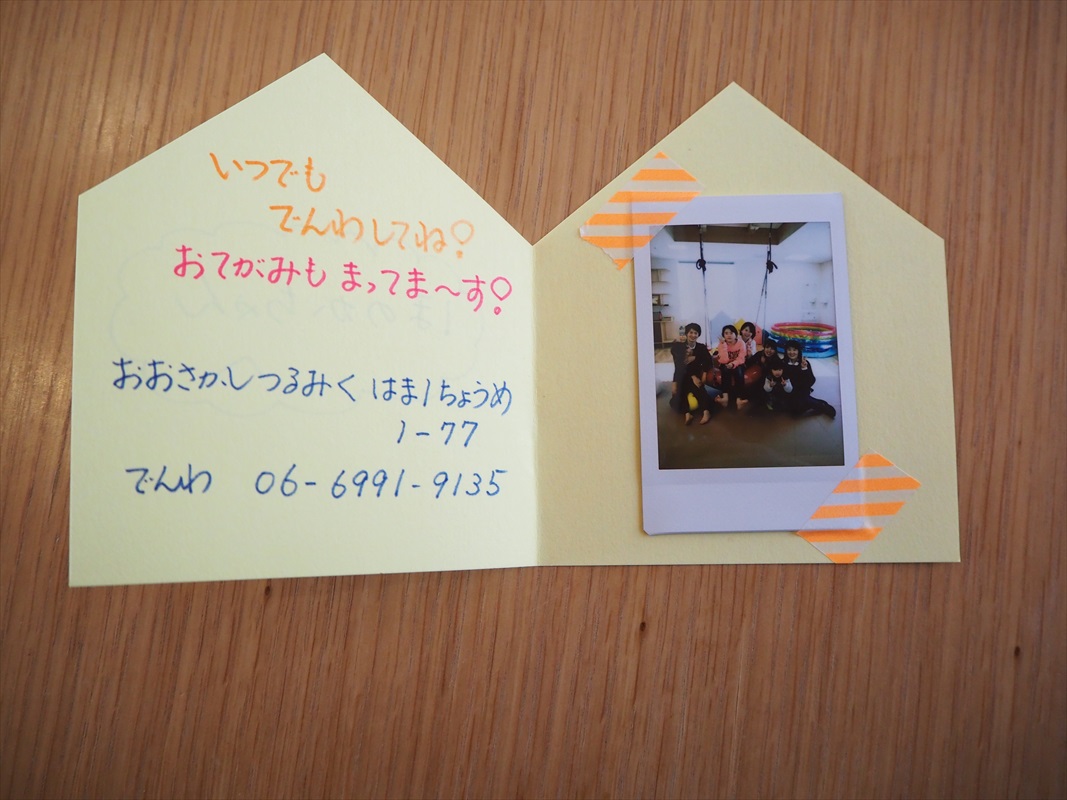 いつでも
でんわしてね!
おてがみも まってま〜す!
おおさかしつるみく はま1ちょうめ
1-77
でんわ 06-6991-9135